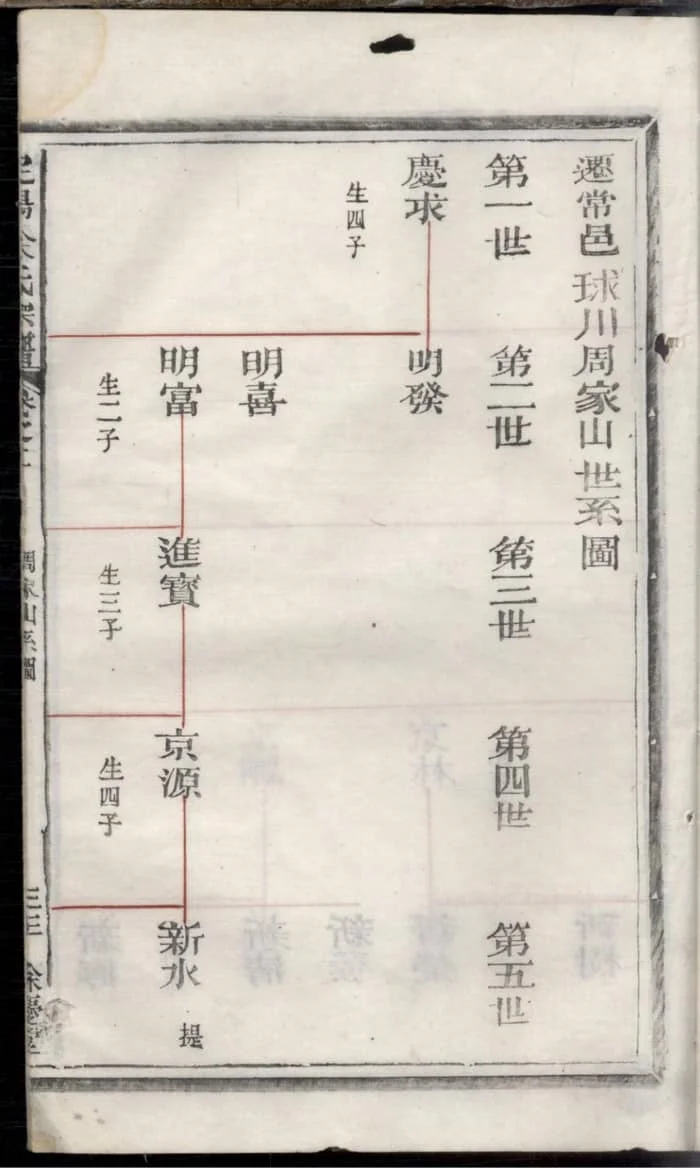 遷常邑球川周家山世系圖
第一世
第二世
第三世
第四世
第五世
慶求
生四子
明發
明喜
明富
生二子
進寳
生三子
京源
生四子
新水
提
余氏宗譜
周家山系圖
余慶堂